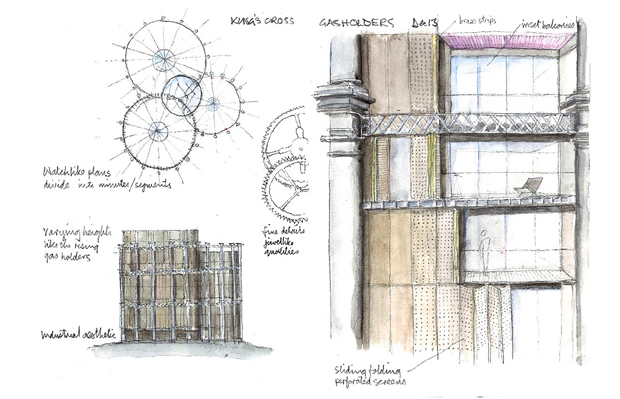 KING'S CROSS GASHOLDERS
brass strips
inset balconies
Watchlike plans
divide into minutes/segments
fine details
jewellike
qualities
varying heights
like the rising
gas holders
Industrial aesthetic
sliding folding
perforated screens